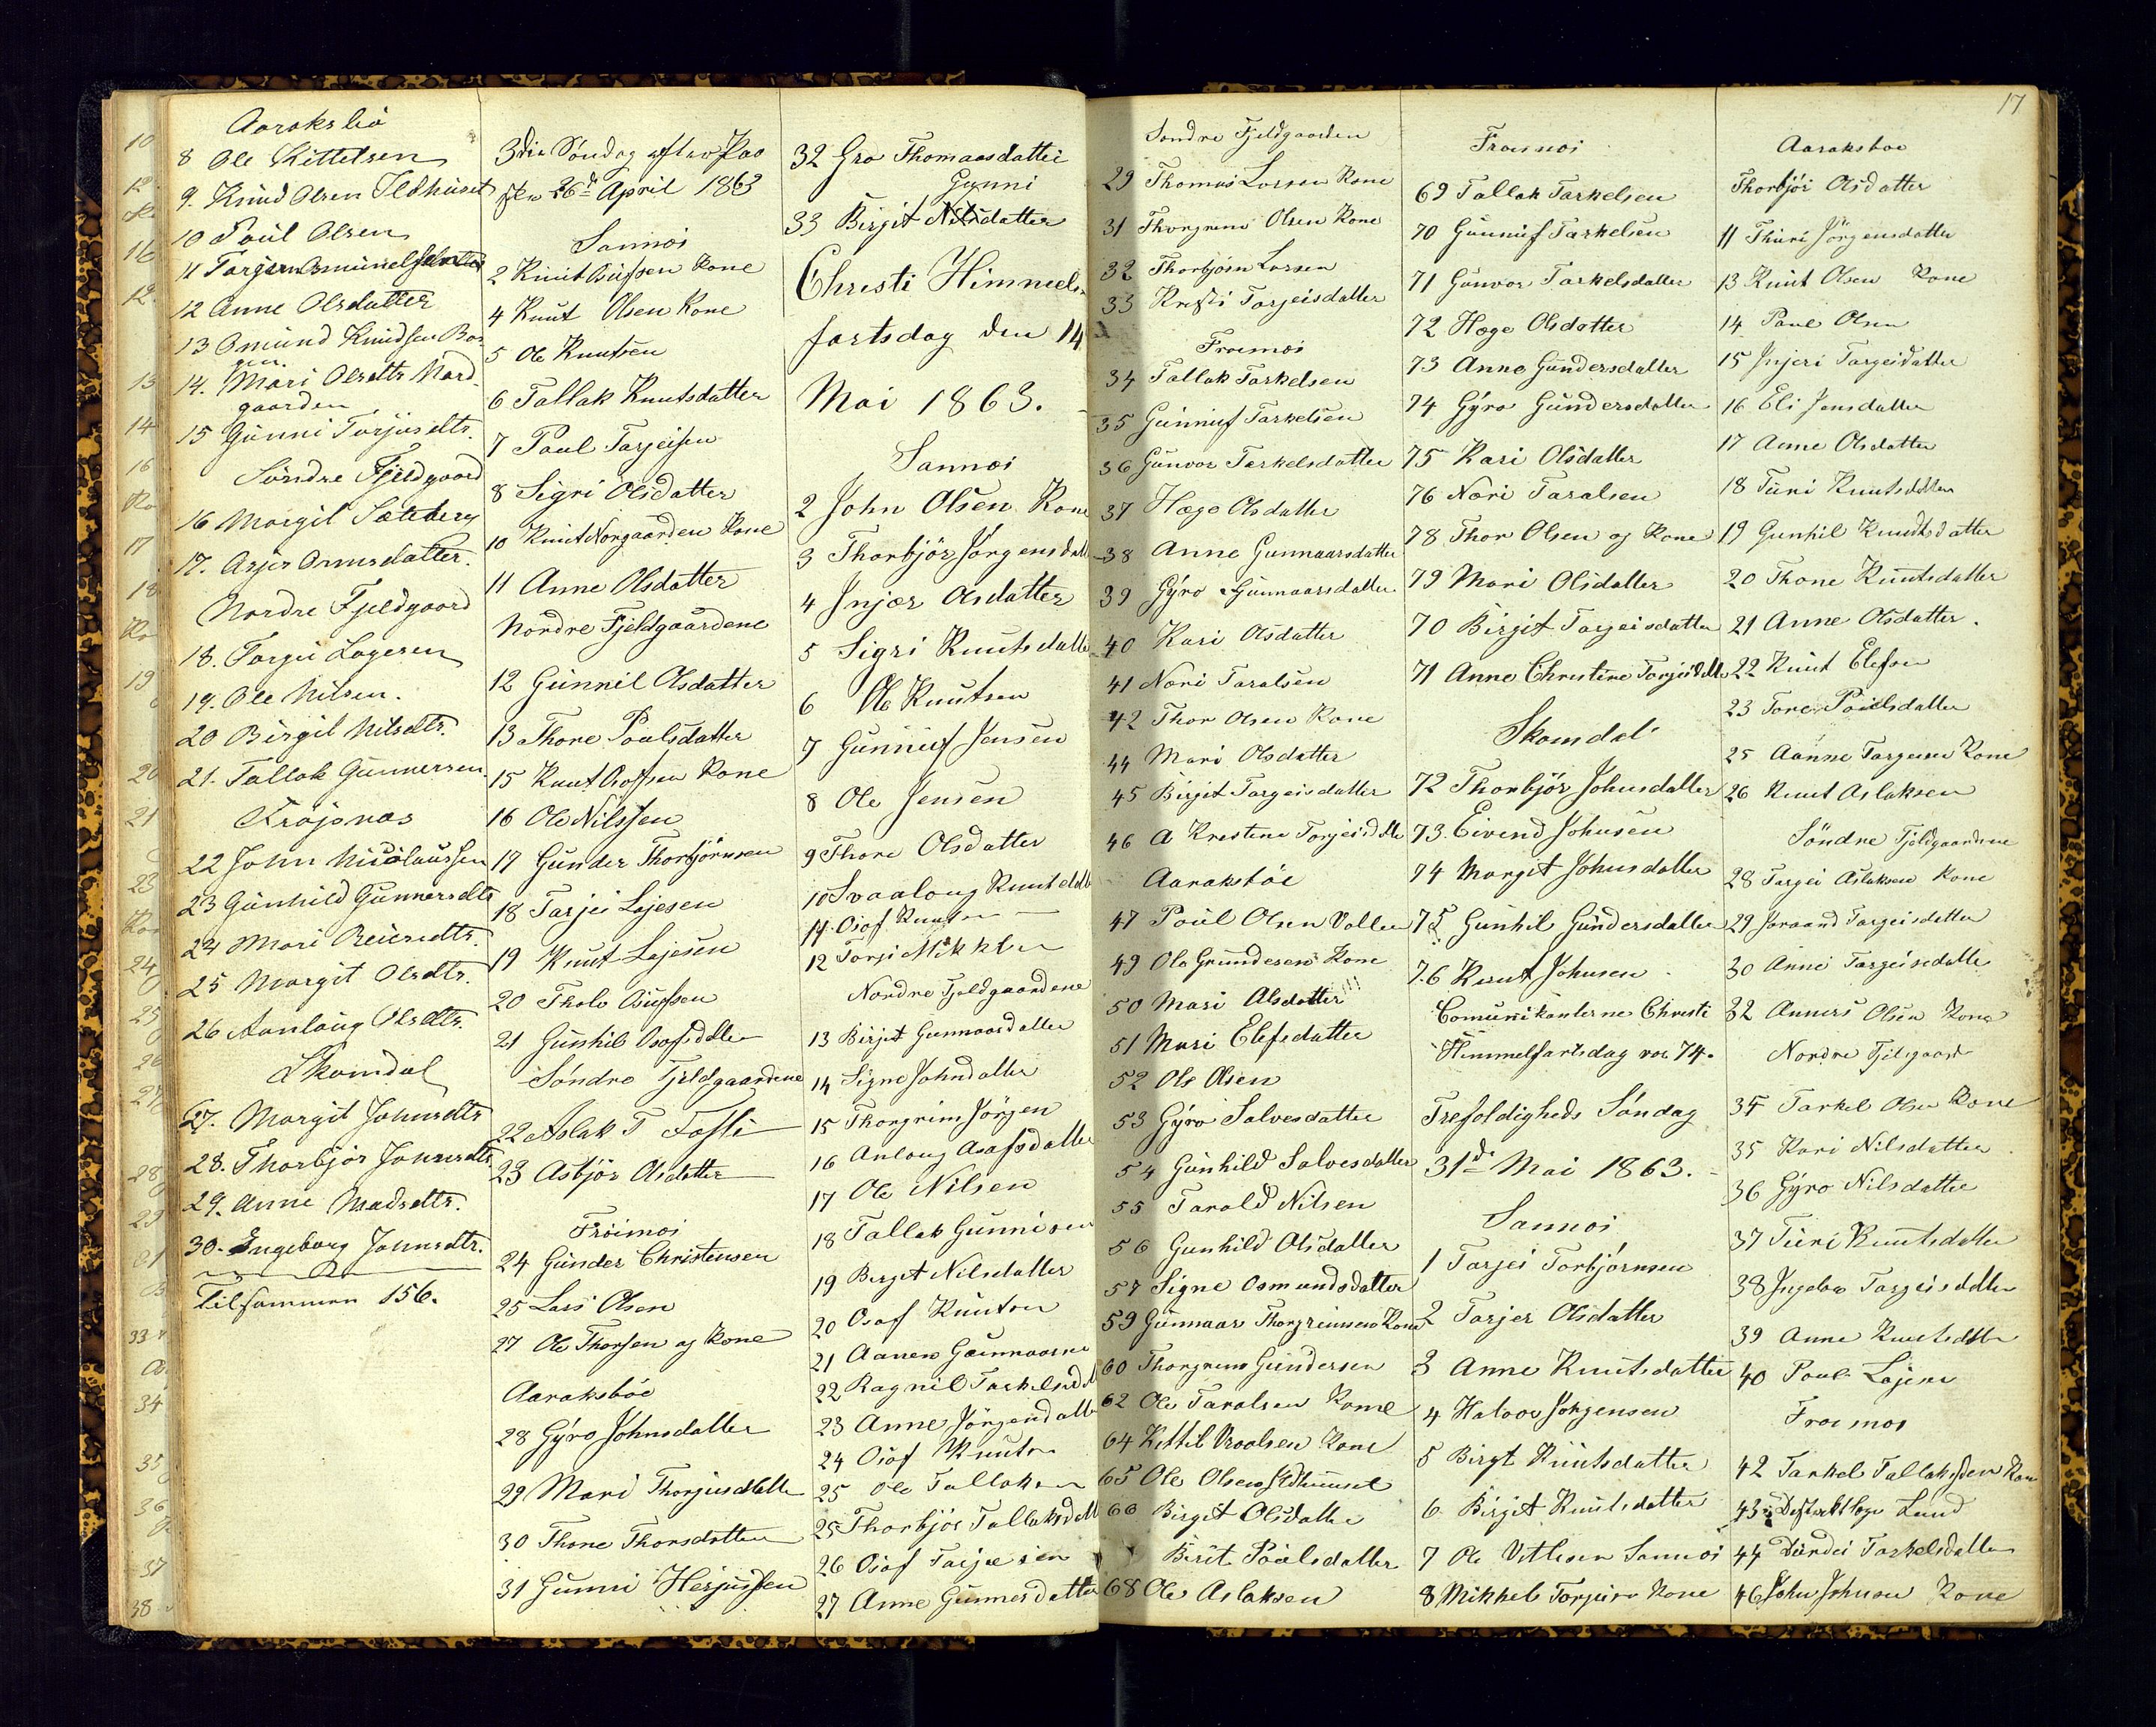 Aarakslió
8 Ole Kittelsen
9. Knud Olsen Ildhuset
10 Poul Olsen
11 Torger
12 Anne Olsdatter
13 Omund Knudsen Bor
gen.
14. Mari Olsdttr Nord
gaarden
15 Gunni Torjusdtr.
Söndre Fjeldgaard
16 Margit Sæteberg
17. Asjer Omusdatter.
Nordre Fjeldgaard
18. Torgei Logesen
19. Ole Nilsen.
20 Birgit Nilsdtr.
21. Tallak Gunnersen
Tröjsnæs
22 John Nicolaussen
23 Gunhild Gunnersdtr
24 Mari Reiersdtr.
25 Margit Olsdtr.
26 Aanlaug Olsdtr.
Skomdal
27. Margit Johnsdtr
28. Thorbjör Johnsdtr
29. Anne Madsdtr.
30. Ingeborg Johnsdtr.
Tilsammen 156.
3die Söndag efter Paa
ske 26de April 1863
Sannæs
2 Knut Osufsen Kone
4 Knut Olsen Kone
5 Ole Knutsen
6 Tallak Knutsdatter
7 Paul Tarjeisen
8 Sigri Olsdatter
10 Knut Norgaarden Kone
11 Anne Olsdatter
Nordre Fjeldgaardene
12 Gunnil Olsdatter
13 Thone Poulsdatter
15 Knut Osofsen Kone
16 Ole Nilssen
17 Gunder Thorbjörnsen
18 Tarjei Lejesen
19 Knut Lejesen
20 Thole Osufsen
21 Gunhil Osofsdatter
Söndre Fjeldgaardene
22 Aslak T Fossli
23 Asbjör Olsdatter
Fröimoi
24 Gunder Christensen
25 Lars Olsen
27 Ole Thorsen og Kone
Aaraksböe
28 Gýro Johnsdatter
29 Mari Thorjusdatter
30 Thone Thorsdatter
31 Gunni Herjussen
32 Gro Thomasdatter
Gunni
33 Birgit Nilsdatter
Christi Himmels
fartsdag den 14
Mai 1863.
Sannæs
2 John Olsen Kone
3 Thorbjör Jörgensdatt
4 Injær Olsdatter
5 Sigri Knutsdatte
6 Ole Knutsen
7 Gunnuf Jensen
8 Ole Jensen
9 Thore Olsdatter
10 Svaaloug Knutsdatt
11 Osof Knutsen
12 Torje Mikkelsen
Nordre Fjeldgaardene
13 Birjit Gunnarsdatter
14 Signe Johndatter
15 Thorgrim Jörgen
16 Anlaug Asafsdatter
17 Ole Nilsen
18 Tallak Gunnisen
19 Birgit Nilsdatter
20 Osof Knutsen
21 Aanen Gunnaarsen
22 Ragnil Tarkelsdt
23 Anne Jörgendatte
24 Osof Knutsen
25 Ole Tallaksen
25 Thorbjör Tallaksdatt
26 Osof Tarjeisen
27 Anne Gunnersdatter
17
Sondre Fjeldgaarden
29 Thomas Larsen Kone
31 Thorgrim Olsen Kone
32 Thorbjörn Larsen
33 Kristi Tarjeisdatter
Froimoi
34 Tallak Tarkelsen
35 Gunnuf Tarkelsen
36 Gunvor Tarkelsdatter
37 Hæge Olsdatter
38 Anne Gunnaarsdatter
39 Gýro Gunnaarsdatter
40 Kari Olsdatter
41 Næri Taralsen
42 Thor Olsen Kone
44 Mari Olsdatter
45 Birgit Targeisdatter
46 A Kristine Torjeisdatter
Aaraksböe
47 Poul Olsen Vollen
49 Ole Grundesen Kone
50 Mari Alsdatter
51 Mari Elefsdatter
52 Ole Olsen
53 Gýro Salvesdatter
54 Gunhild Salvesdatter
55 Tarald Nilsen
56 Gunhild Olsdatter
57 Signe Osmundsdatter
59 Gunnaar Thorgrimsen Kone
60 Thorgrim Gundersen
62 Ole Taralsen Kone
64 Kittil Kone
65 Ole Olsen Ildhuuset
66 Birgit Olsdatter
Birit Poulsdatter
68 Ole Aslaksen
Froimoi
69 Tallak Tarkelsen
70 Gunnuf Tarkelsen
71 Gunvor Tarkelsdatter
72 Hæge Olsdatter
73 Anne Gundersdatter
74 Gýro Gundersdatter
75 Kari Olsdatter
76 Næri Taralsen
78 Thor Olsen og Kone
79 Mari Olsdatter
70 Birgit Torgeisdatter
71 Anne Christine Torjeisdatter
Skomdal
72 Thorbjör Johnsdatter
73. Eivend Johnsen
74 Margit Johnsdatter
75 Gunhil Gundersdatter
76 Knut Johnsen
Comunikanterne Christi
Himmelfartsdag var 74.
Trefoldigheds Söndag
31de Mai 1863.
Sannoi
1 Tarjei Torbjörnsen
2 Tarjer Olsdatter
3 Anne Knutsdatter
4 Halvor Jörgensen
5 Birgt Knutsdatter
6 Birgit Knutsdatter
7 Ole Vetlesen Sannoi
8 Mikkel Torjusen Kone
Aaraksboe
Thorbjör Olsdatter
11 Thuri Jörgensdatter
13 Knut Olsen Kone
14 Paul Olsen
15 Injeri Targeisdatter
16 Eli Jensdatter
17 Anne Olsdatter
18 Turi Knutsdatter
19 Gunhil Knudtsdatter
20 Thone Knutsdatter
21 Anne Olsdatter.
22 Knut Elefsen
23 Tore Poulsdatter
25 Aanne Targeisen Kone
26 Knut Aslaksen
Söndre Fjeldgaardene
28 Targei Aslaksen Kone
29 Joraand Targeisdatter
30 Anne Targeisdatter
32 Anners Olsen Kone
Nordre Fjelgaard
34 Tarkel Olsen Kone
35 Kari Nilsdatter
36 Gýro Nilsdatter
37 Turi Knutsdatter
38 Ingebor Targeisdatter
39 Anne Knutsdatter
40 Paul Lajesen
Froimoi
42 Tarkel Tallaksen Kone
43 Distriktlæge Lund
44 Durdei Tarkelsdatter
46 John Johnsen Kone